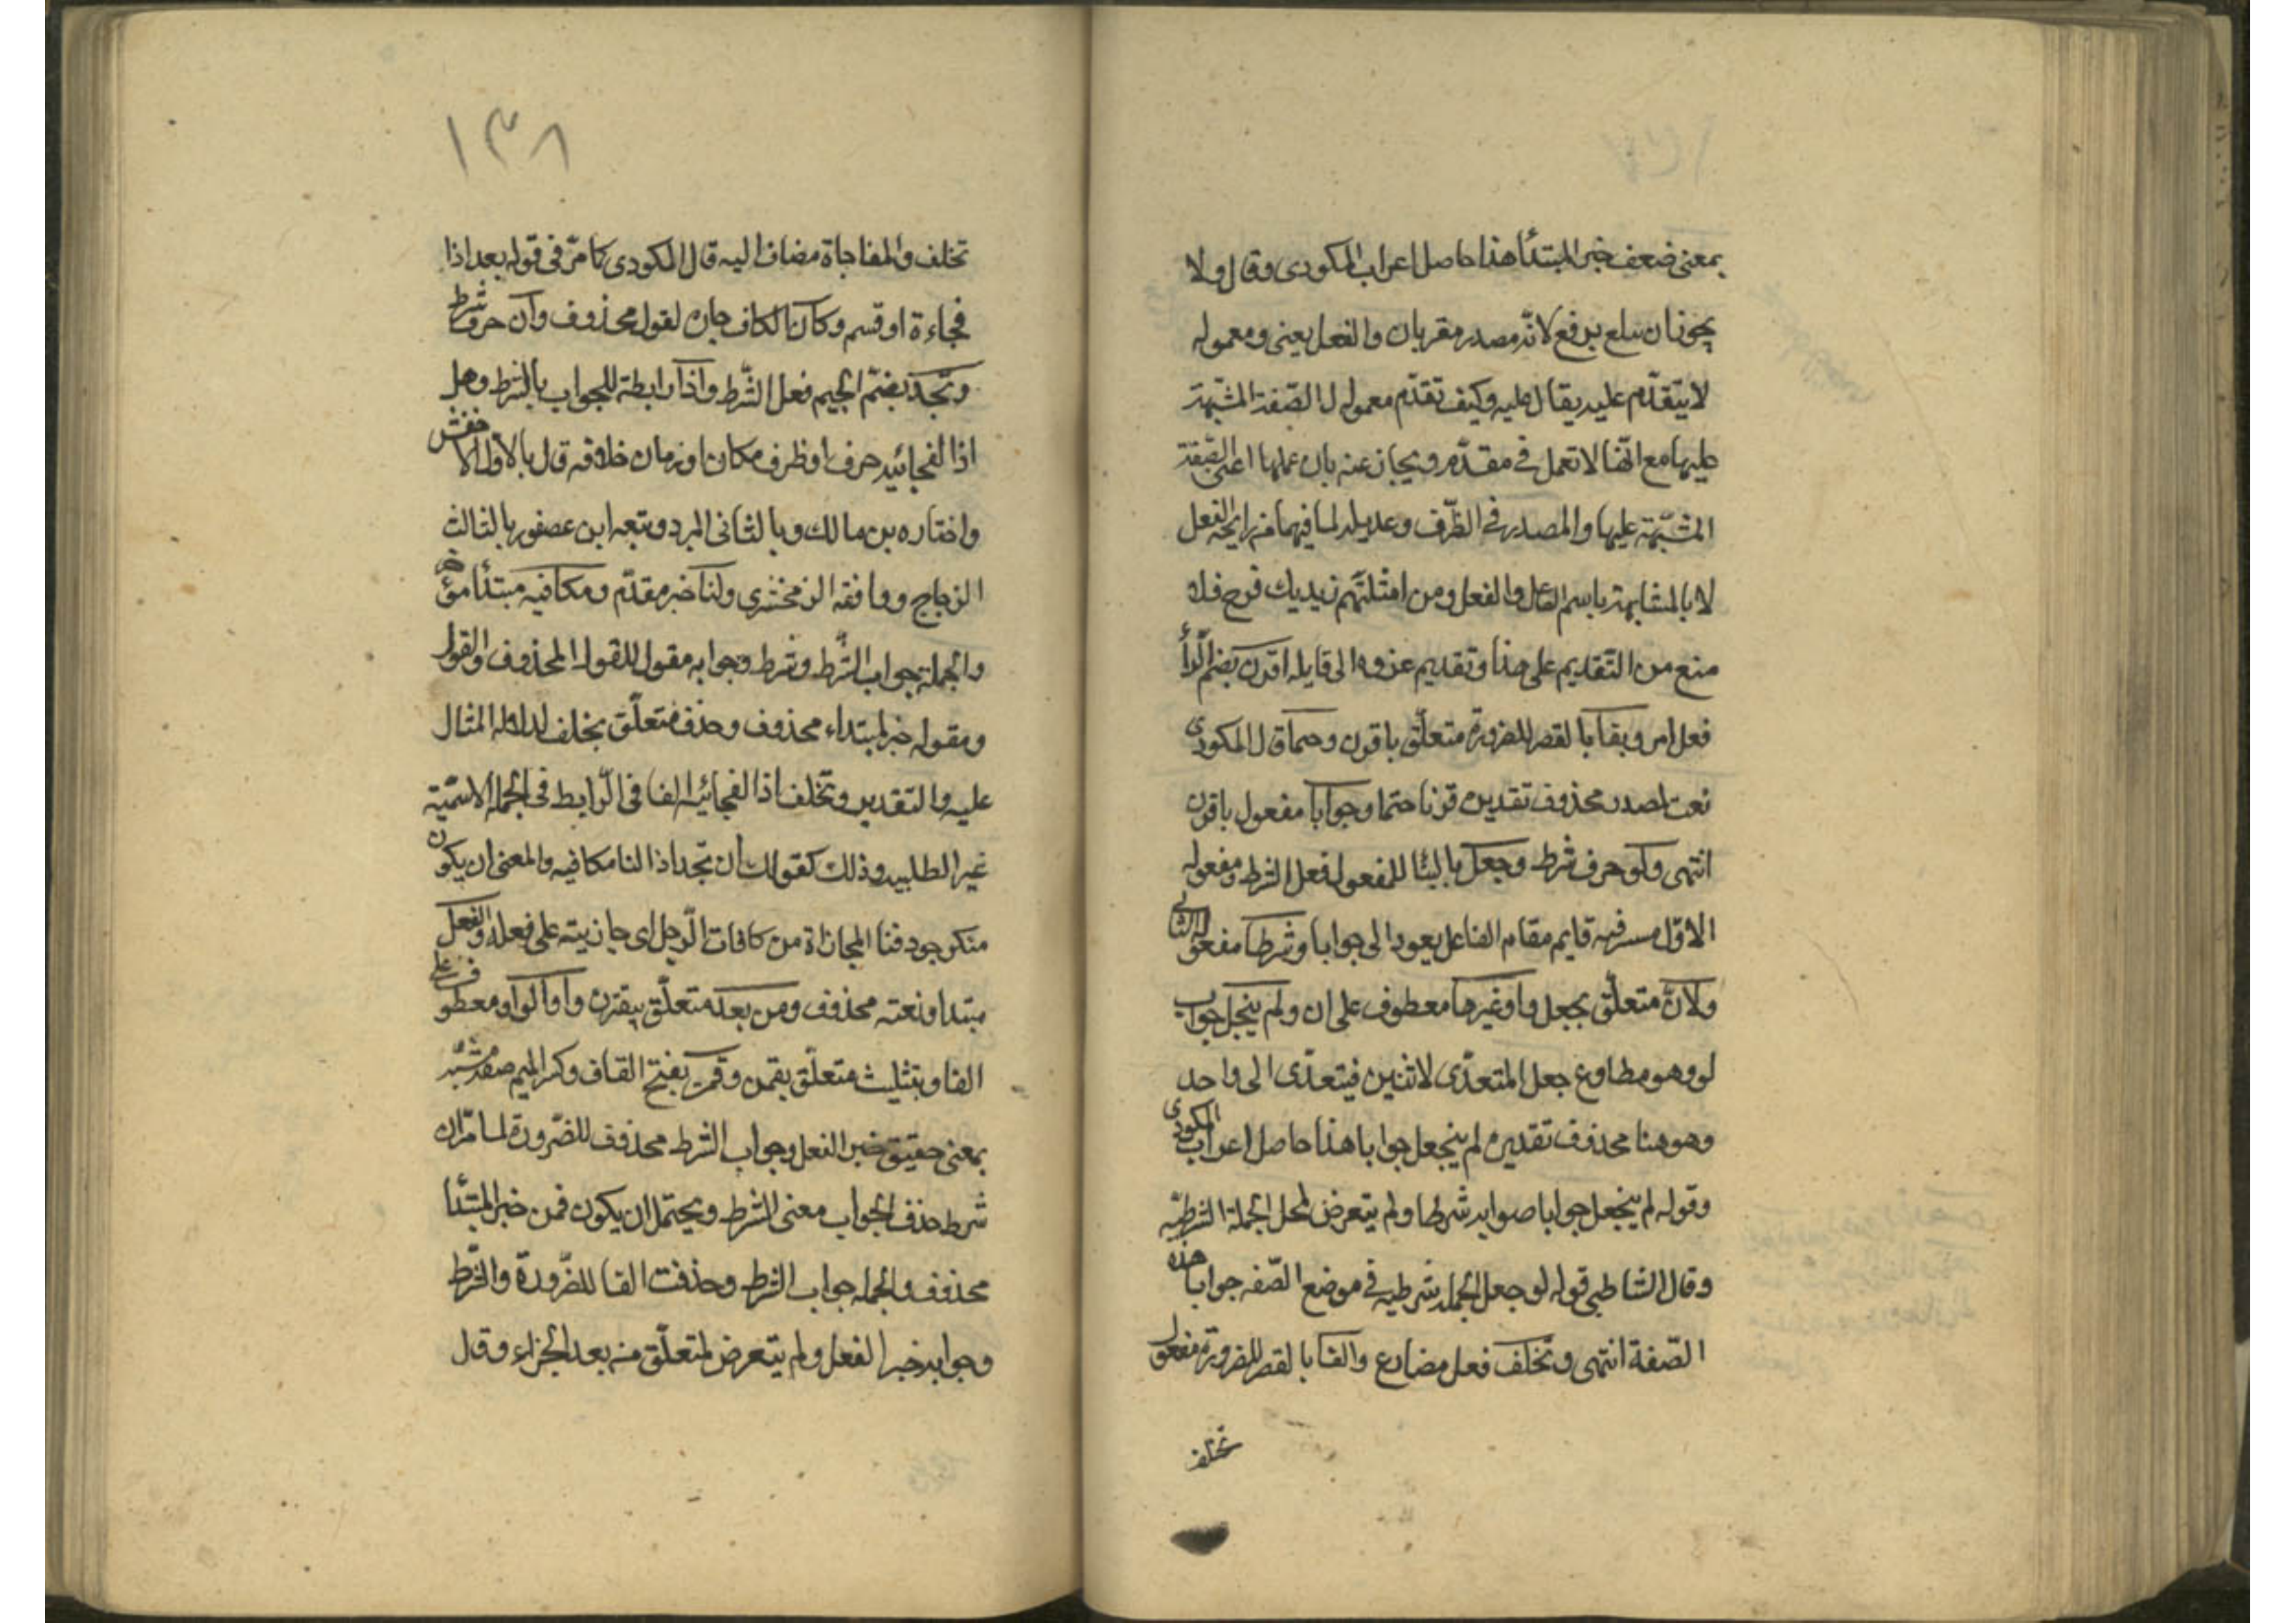 بمعنى ضعف خبر المبتدأ هذا حاصل اعراب المكودى وقال ولا
يجوز ان يرفع لانه مصدر مقدر بان والفعل يعنى ومعموله
لا يتقدم عليه يقال عليه وكيف تقدم معمول الصفة المشبهة
عليها مع انها لا تعمل فى مقدم ويجاب عنه بان عملها اعنى الصفة
المشبهة عليها والمصدر فى الظرف وعديله لما فيهما من رايحة الفعل
لا بالمشابهة باسم الفاعل والفعل ومن امثلتهم زيد بك فرح فلا
منع من التقديم على هذا وتقديم عزوه الى قايله اقرن بضم الرأ
فعل امر وبفا بالقصر للضرورة متعلق باقرن وحتما قال المكودى
نعت لمصدر محذوف تقديره قرنا حتما وجوابا مفعول باقرن
انتهى ولو حرف شرط وجعل بالبنا للمفعول فعل الشرط ومفعوله
الاول مستتر فيه قايم مقام الفاعل يعود الى جوابا وشرطا مفعوله الثانى
ولان متعلق بجعل واو غيرها معطوف على ان ولم ينجعل جواب
لو وهو مطاوع جعل المتعدى لاثنين فيتعدى الى واحد
وهو هنا محذوف تقديره لم ينجعل جوابا هذا حاصل اعراب المكودى
وقوله لم ينجعل جوابا صوابه شرطا ولم يتعرض لمحل الجملة الشرطيه
وقال الشاطبى قوله لو جعل الجمله شرطيه فى موضع الصفه جوابا هذه
الصفة انتهى وتخلف فعل مضارع والفا بالقصر للضرورة مفعول
تخلف
١٣٨
تخلف والمفاجاة مضاف اليه قال المكودى كما مر فى قوله بعد اذا
فجاءة او قسم وكان الكاف جارة لقول محذوف وان حرف شرط
وتجد بضم الجيم فعل الشرط واذا رابطة للجواب بالشرط وهل
اذا الفجائيه حرف او ظرف مكان او زمان خلاف قال بالاول الاخفش
واختاره بن مالك وبالثانى المبرد وتبعه ابن عصفور بالثالث
الزجاج ووافقه الزمخشرى ولنا خبر مقدم ومكافيه مبتدأ مؤخر
والجملة جواب الشرط وشرط وجوابه مقول للقول المحذوف والقول
ومقوله خبر لمبتداء محذوف وحذف متعلق بخلف لدلالة المثال
عليه والتقدير وتخلف اذا الفجائيه الفا فى الرابط فى الجملة الاسمية
غير الطلبيه وذلك كقولك ان تجد اذا لنا مكافيه والمعنى ان يكون
منك وجود فنا المجازاة من كافات الرجل اى جازيته على فعله والفعل
مبتدا ونعته محذوف ومن بعد متعلق بيقترن واو الواو ومعطوف على
الفا وبتثليث متعلق بقمن وقمن بفتح القاف وكسر الميم صفة مشبهه
بمعنى حقيق خبر الفعل وجواب الشرط محذوف للضرورة لما مر ان
شرط حذف الجواب معنى الشرط ويحتمل ان يكون قمن خبر المبتدأ
محذوف والجمله جواب الشرط وحذفت الفا للضرورة والشرط
وجوابه خبر الفعل ولم يتعرض لمتعلق من بعد الجزاء وقال